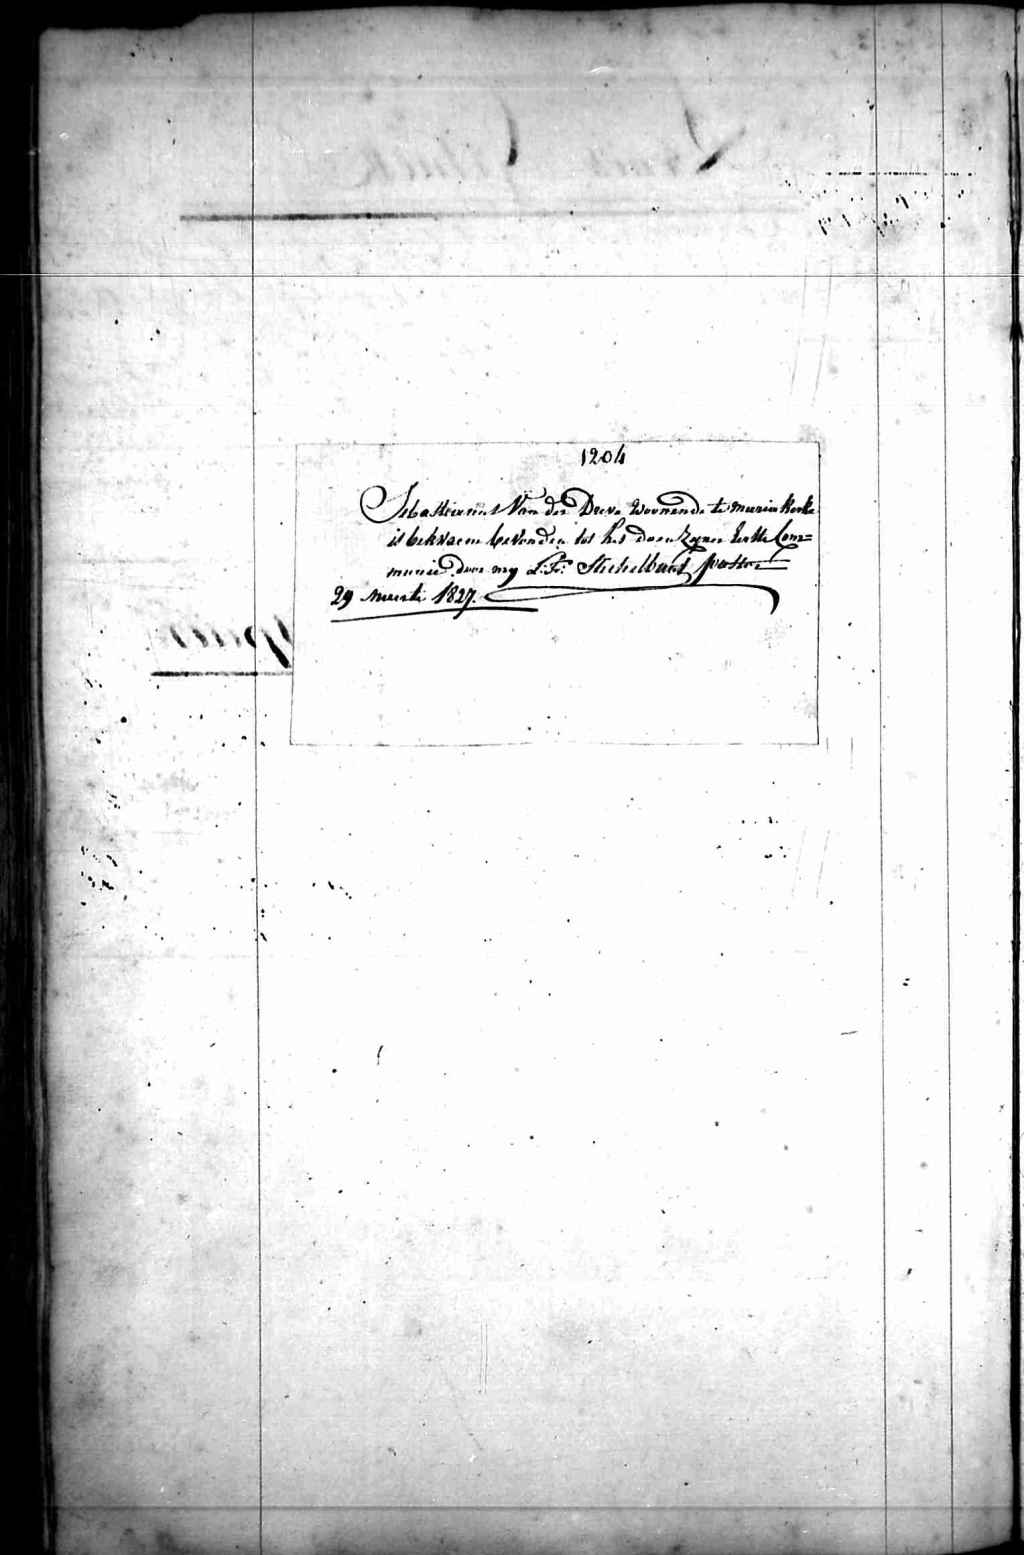 1204
Sebastiaenus Van der Deere woonende te mariakerke
is bekwaem bevonden tot het doen zyner Eerste Com=
munie door my L: Fr: Stichelbaut pastor
29 meerte 1827.